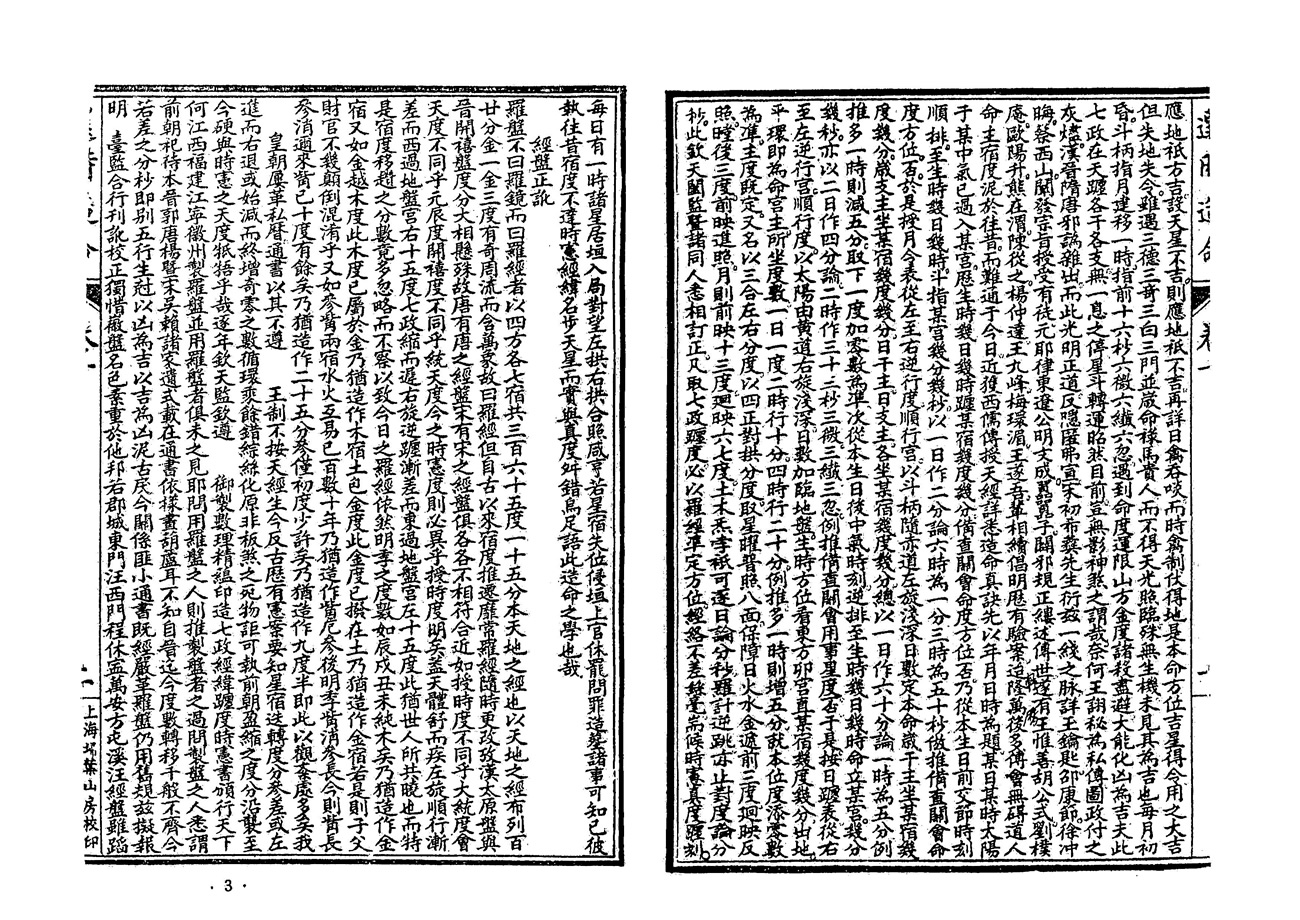 應地祇方吉設天星不吉則應地祇不吉再詳日禽吞啖而時禽制伏得地是本命方位吉星得令用之大吉
但失地失令雖遇三德三奇三白三門並嚴命祿馬貴人而不得天光照臨殊無生機未見其為吉也每月初
昏斗柄指月建移一時指前十六秒六微六纖六忽遇到命度運限山方金度諸殺盡避大能化凶為吉夫此
七政在天躔各干各支無一息之停星斗轉運昭然目前豈無影神煞之謂哉奈何王詡秘為私傳圖政付之
灰燼漢晉隋唐邪譌雜出而此光明正道反隱匿弗宣宋初布蔡先生衍兹一綫之脉詳王鑰匙邵康節徐冲
晦蔡西山闡發宗旨授受有徒元耶律東遼公明文成冀冀子闢邪規正纏述傳世遂有王惟善胡公式劉樸
庵歐陽升熊在渭陳從之楊仲達王九峰梅環湄王遂吾輩相繪倡明歷有驗案造隆萬後多傅會無碍道人
命主宿度泥於往昔而難通于今日近獲西儒傳授天經詳悉造命真訣先以年月日時為題某日某時太陽
于某中氣已過入某宮歷生時幾日幾時躔某宿幾度幾分備查關會命度方位否乃從本生日前交節時刻
順排至生時幾日幾時斗指某宮幾分幾秒以一日作二分論六時為一分三時為五十秒倣推備查關會命
度方位否於是按月令表從左至右逆行度順行宮以斗柄隨赤道左旋淺深日數定本命歲干主坐某宿幾
度幾分歲支主坐某宿幾度幾分日干主日支主各坐某宿幾度幾分總以一日作六十分論一時為五分例
推多一時則減五分取下一度加零數為準次從本生日後中氣時刻逆排至生時幾日幾時命立某宮幾分
幾秒亦以二日作四分論二時作三十三秒三微三纖三忽例推備查關會用事星度否于是按日躔表從右
至左逆行宮順行度以太陽由黃道右旋淺深日數加臨地盤生時方位看東方卯宮直某宿幾度幾分出地
平環即為命宮主所坐度數一日一度二時行十分四時行二十分例推多一時則增五分就本位度添零數
為準主度既定又名以三合左右分度以四正對拱分度取星曜普照八面保障日火水金遞前三度廻映反
照時後三度前映進照月則前映十三度廻映六七度土木炁孛祇可逐日論分秒羅計逆跳亦止對度論分
秒此欽天闕監暨諸同人悉相訂正凡取七政躔度必以羅經準定方位經絡不差絲毫耑候時憲真度躔刻
每日有一時諸星居垣入局對望左拱右拱合照咸亨若星宿失位優垣上官休罷問罪造塟諸事可知已彼
執往昔宿度不達時憲經緯名步天星而實與真度舛錯烏足語此造命之學也哉
經盤正訛
羅盤不曰羅鏡而曰羅經者以四方各七宿共三百六十五度一十五分本天地之經也以天地之經布列百
廿分金一金三度有奇周流而含萬象故曰羅經但自古以來宿度推遷靡常羅經隨時更改攷漢太原盤與
晉開禧盤度分大相懸殊故唐有唐之經盤宋有宋之經盤俱各各不相符合近如授時度不同乎大統度會
天度不同乎元辰度開禧度不同乎統天度今之時憲度則必異乎授時度明矣盖天體舒而疾左旋順行漸
差而西過地盤宮右十五度七政縮而遲右旋逆躔漸差而東過地盤宮左十五度此猶世人所共曉也而特
是宿度移趨之分數竟多忽略而不察以致今日之羅經依然明季之度數如辰戌丑未純木矣乃猶造作金
宿又如金越木度此木度已屬於金乃猶造作木宿土包金度此金度已撥在土乃猶造作金宿若是則子父
財官不幾顛倒混淆乎又如參觜兩宿水火互易已百數十年乃猶造作觜尼參後明季觜消參長今則觜長
參消遞來觜已十度有餘矣乃猶造作二十五分參僅初度少許矣乃猶造作九度半即此以觀紊處多矣我
皇朝屢革私曆通書以其不遵　王制不按天經生今反古歷有憲案要知星宿迭轉度分參差或左
進而右退或始減而終增奇零之數循環乘餘錯綜絲化原非板煞之宛物詎可執前朝盈縮之度分沿襲至
今硬與時憲之天度牴牾乎哉遂年欽天監欽遵　御製數理精緼印造七政經緯躔度時憲書頒行天下
何江西福建江寧徽州製羅盤並用羅盤者俱未之見耶問用羅盤之人則推製盤者之過問製盤之人悉謂
前朝祀待本晉郭唐楊暨宋吳賴諸家遺式載在通書依樣畫葫蘆耳不知自晉迄今度數轉移千般不齊今
若差之分秒即別五行生尅以凶為吉以吉為凶泥古戾今關係匪小通書既經嚴革羅盤仍用舊規兹擬報
明　臺監合行刊訛校正獨惜徽盤名色素重於他邦若郡城東門汪西門程休寍萬安方屯溪汪經盤雖蹈
上海埽葉山房校印
· 3 ·